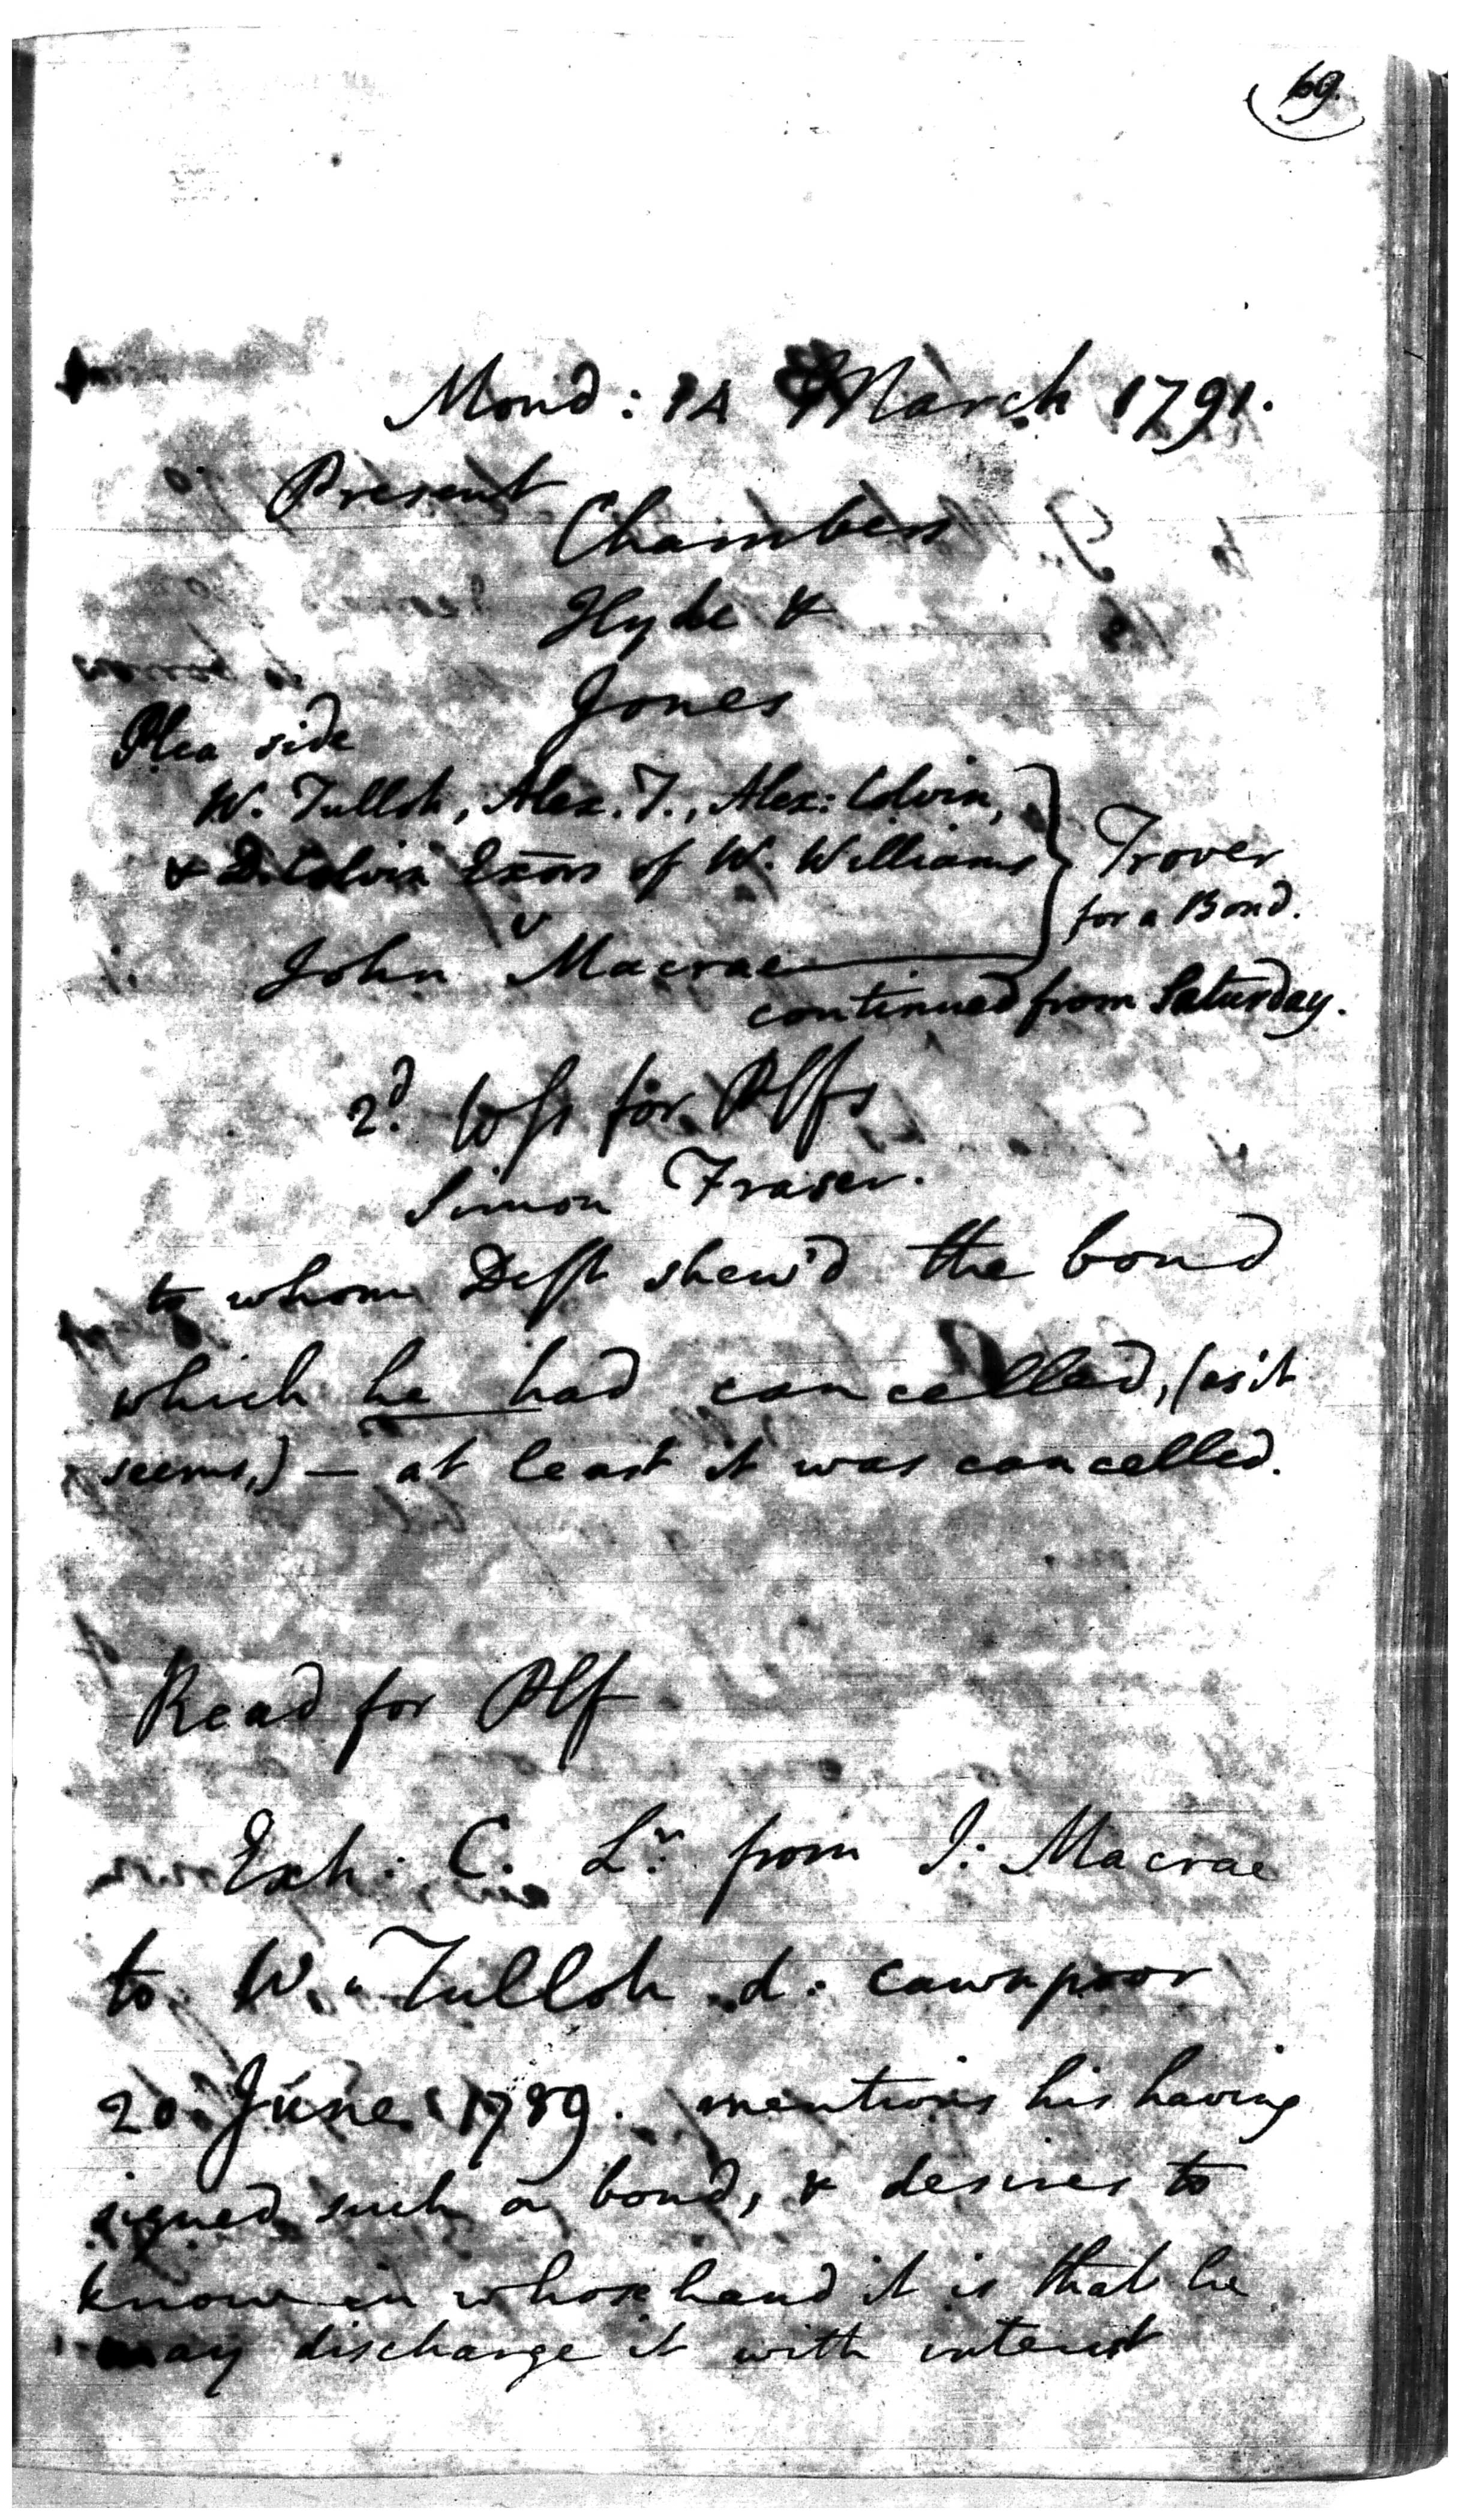 69.
Mond: 14 March 1791.
Present
Chambers
Hyde &
Jones
Plea side
W. Tulloh, Alex. T., Alex: Colvin,
& D. Colvin Exors of W. Williams
v
John Macrae
Trover
for a Bond.
continued from Saturday.
2d. Wss for Plfs
Simon Fraser.
to whom Deft shew'd the bond
which he had cancelled, (as it
seems,) — at least it was cancelled.
Read for Plf
Exh: C. Lr. from J: Macrae
to W. Tulloh d: Cawnpoor
20 June 1789. mentions his having
signed such a bond, & desires to
know in whose hand it is that he
may discharge it with interest